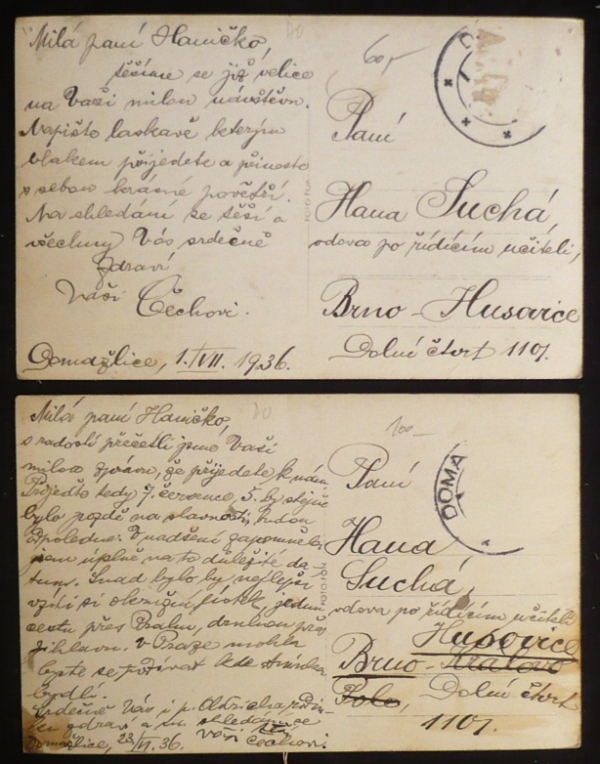 Milá paní Haničko,
těšíme se již velice
na Vaši milou návštěvu.
Napište laskavě kterým
vlakem přijedete a přineste
s sebou krásné povětří.
Na shledání se těší a
všechny Vás srdečně
zdraví
Vaši Čechovi.
Domažlice, 1./VII. 1936.
60,-
Paní
Hana Suchá,
vdova po řídícím učiteli,
Brno-Husovice
Dolní čtvrt 1107.
DO
FOTO FON
Milá paní Haničko,
s radostí přečetli jsme Vaši
milou zprávu, že přijedete k nám.
Přijeďte tedy 7. července, 5. by stejně
bylo pozdě na slavnosti, budou
dopoledne. V nadšení
jsem úplně na to důležité da-
tum. Snad bylo by nejlepší
vzíti si okružní lístek, jednu
cestu přes Prahu, druhou přes
Jihlavu. V Praze mohla
byste se podívat kde Anička
bydlí.
Srdečně Vás i p. Oldřicha
zdraví a na shledanou se
těší
Domažlice, 28/VI. 36. Vaši Čechovi.
DO
100,-
DOMA
Paní
Hana
Suchá,
vdova po řídícím učiteli
Husovice
Brno-Královo
Pole,
Dolní čtvrt
1107.
FOTO FON